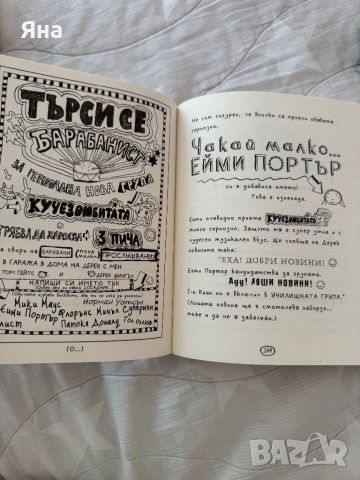 Яна
ТЪРСИ СЕ
БАРАБАНИСТ
ЗА ГЕНИАЛНА НОВА ГРУПА
КУЧЕЗОМБИТАТА
ТРЯБВА ДА ХАРЕСВА
3 ПИЧА
да свири на БАРАБАНИ
ПРОСЛУШВАНЕ
В ГАРАЖА В ДОМА НА ДЕРЕК С МЕН
ТОМ ГЕЙТС и ДЕРЕК ФИНГЪЛ
НАПИШИ СИ ИМЕТО ТУК
Мики Маус Норман Уотсън
Ейми Портър Флорънс Мичъл Супермен
Патока Доналд
(О...)
Не съм сигурен, че всички са приели обявата
сериозно.
Чакай малко...
ЕЙМИ ПОРТЪР
си е добавила името!
Това е изненада.
Ейми очевидно приема КУЧЕЗОМБИТАТА
сериозно. Защото тя е супер умна и с
чудесен музикален вкус. Ще съобщя на Дерек
новините.
"ЕХА! ДОБРИ НОВИНИ!
Ейми Портър кандидатства за групата.
Ауу! ЛОШИ НОВИНИ!
Гъз Киот ни е включил в УЧИЛИЩНАТА ГРУПА."
(Лошата новина ще я спомена набързо...
може и да не я забележи.)
249
BAZAR